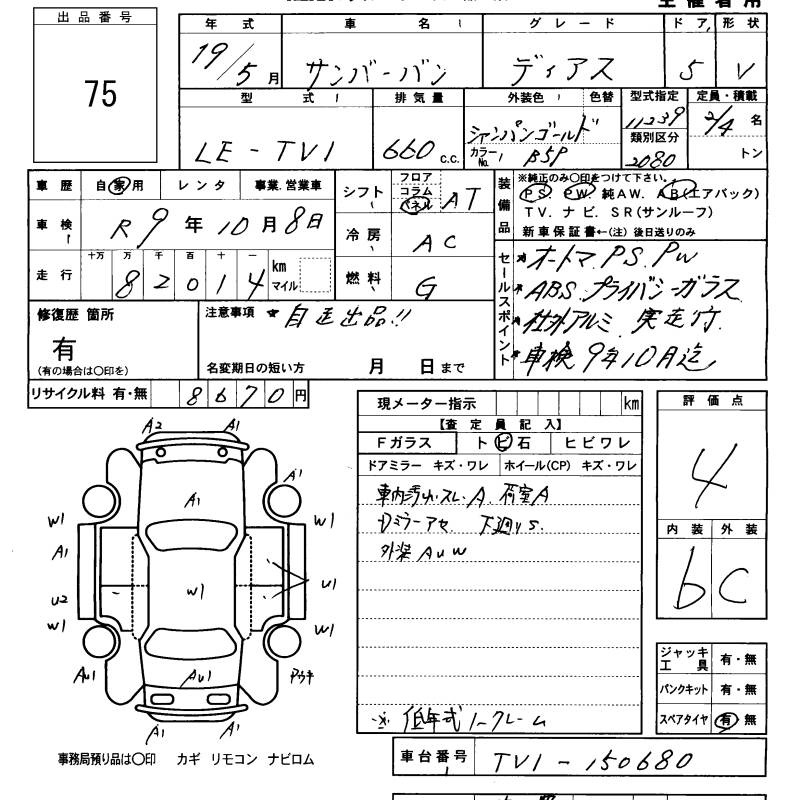 出品番号
75
年式 車名 グレード ドア 形状
19/5月 サンバーバン ディアス 5 V
型式 排気量 外装色 色替 型式指定 定員・積載
LE-TV1 660 c.c. シャンパンゴールド 11239 2/4名
カラーNo. B5P 類別区分 2080 トン
車歴 自家用 レンタ 事業.営業車 シフト フロア コラム パネル AT
装備品 ※純正のみ〇印をつけて下さい。
PS. PW. 純AW. AB(エアバック)
TV. ナビ. SR(サンルーフ)
新車保証書←(注) 後日送りのみ
車検 R9年10月8日 冷房 AC
走行 十万 万 千 百 十 一
82014 km マイル 燃料 G
セールスポイント
オートマ. PS. PW
ABS. プライバシーガラス
社外アルミ. 実走行
車検9年10月迄
修復歴 箇所 注意事項 ★自走出品!!
有
(有の場合は〇印を) 名変期日の短い方 月 日まで
リサイクル料 有・無 8670円
現メーター指示 km
評価点
【査定員記入】
Fガラス トビ石 ヒビワレ
ドアミラー キズ・ワレ ホイール(CP) キズ・ワレ
4
車内汚れ.スレ.A. 荷室A
Dミラーアセ 下廻りS.
外装AUW
内装 外装
b C
A2 A1
A1 A1
W1 W1
A1
W1
U2 U1
W1 W1
AU1 AU1
A1 A1
ジャッキ工具 有・無
パンクキット 有・無
スペアタイヤ 有・無
※ 低年式ノークレーム
事務局預り品は〇印 カギ リモコン ナビロム
車台番号 TV1-150680